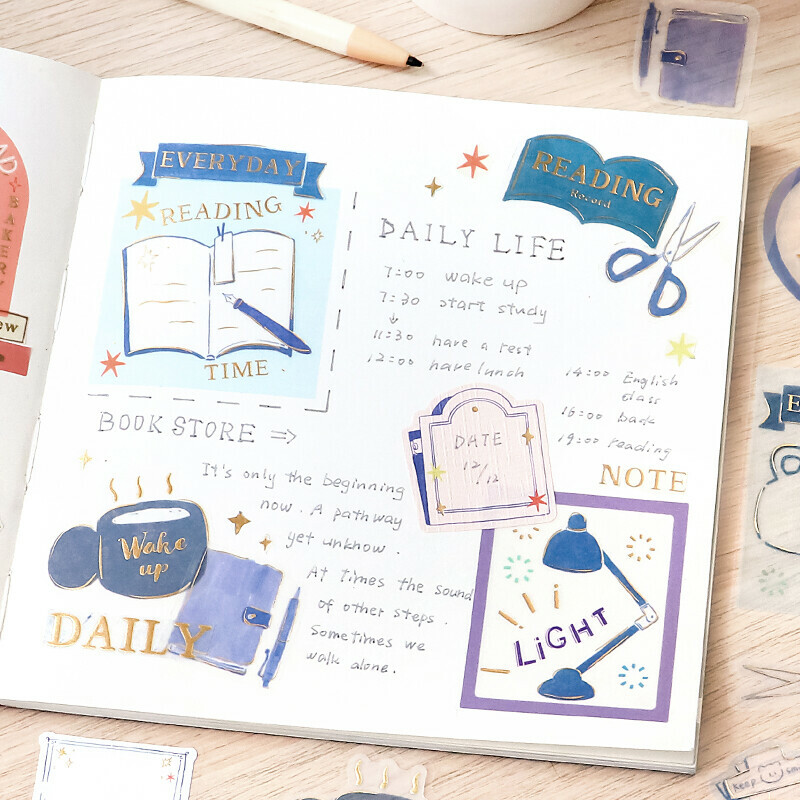 EVERYDAY
READING
TIME
BOOK STORE ⇒
READING
Record
DAILY LIFE
7:00 wake up
7:30 start study
↓
11:30 have a rest
12:00 have lunch
14:00 English
class
16:00 back
19:00 reading
DATE
12/12
NOTE
It's only the beginning
now. A pathway
yet unknow.
At times the sound
of other steps.
Sometimes we
walk alone.
Wake
up
DAILY
LiGHT
BAKERY
ew
Keep